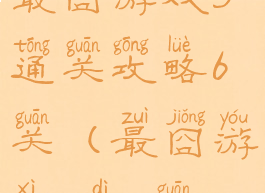 最囧游戏3
tōng guān gōng lüè
通关攻略6
guān zuì jiǒng yóu
关（最囧游
xì dì guān